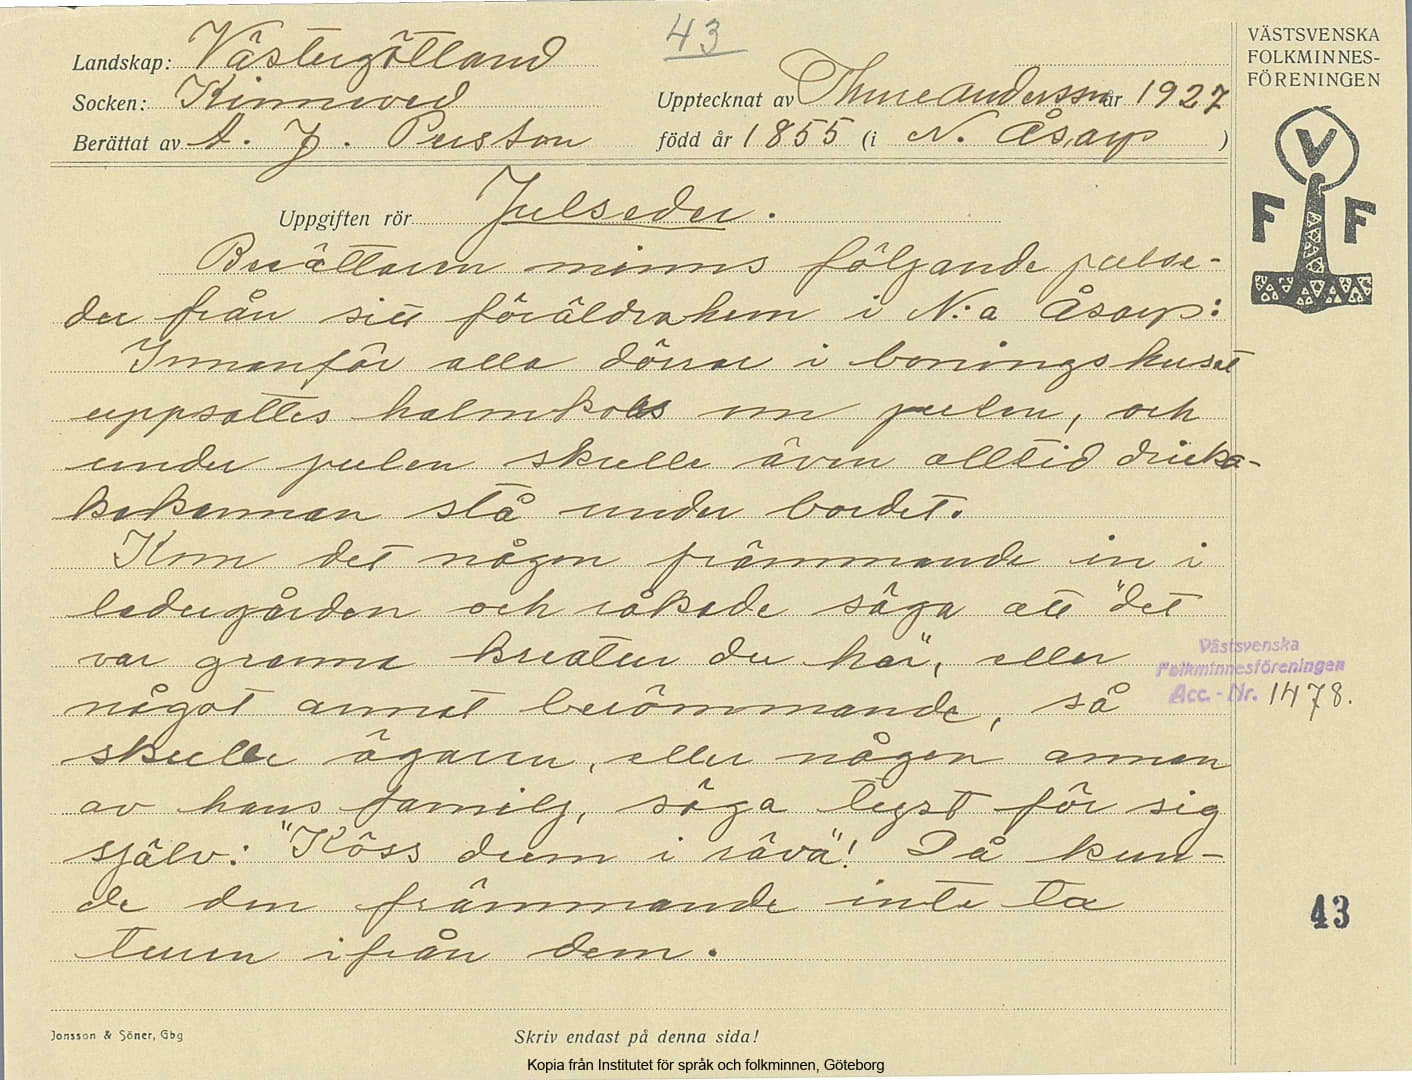 43
Landskap: Västergötland
Socken: Kinneved
Upptecknat av Thure Andersson år 1927
Berättat av A. J. Persson
född år 1855 (i N. Åsarp )
VÄSTSVENSKA
FOLKMINNES-
FÖRENINGEN
V
F F
Uppgiften rör Julseder.
Berättaren minns följande julse-
der från sitt föräldrahem i N:a Åsarp:
Innanför alla dörrar i boningshuset
uppsattes halmkors om julen, och
under julen skulle även alltid dricka-
kakannan stå under bordet.
Kom det någon främmande in i
ladugården och råkade säga att "det
var granna kreatur du har", eller
något annat berömmande, så
skulle ägaren, eller någon annan
av hans familj, säga tyst för sig
själv: "Köss dum i råvä"! Då kun-
de den främmande inte ta
turen ifrån dem.
Västsvenska
Folkminnesföreningen
Acc.-Nr. 1478.
43
Jonsson & Söner, Gbg
Skriv endast på denna sida!
Kopia från Institutet för språk och folkminnen, Göteborg